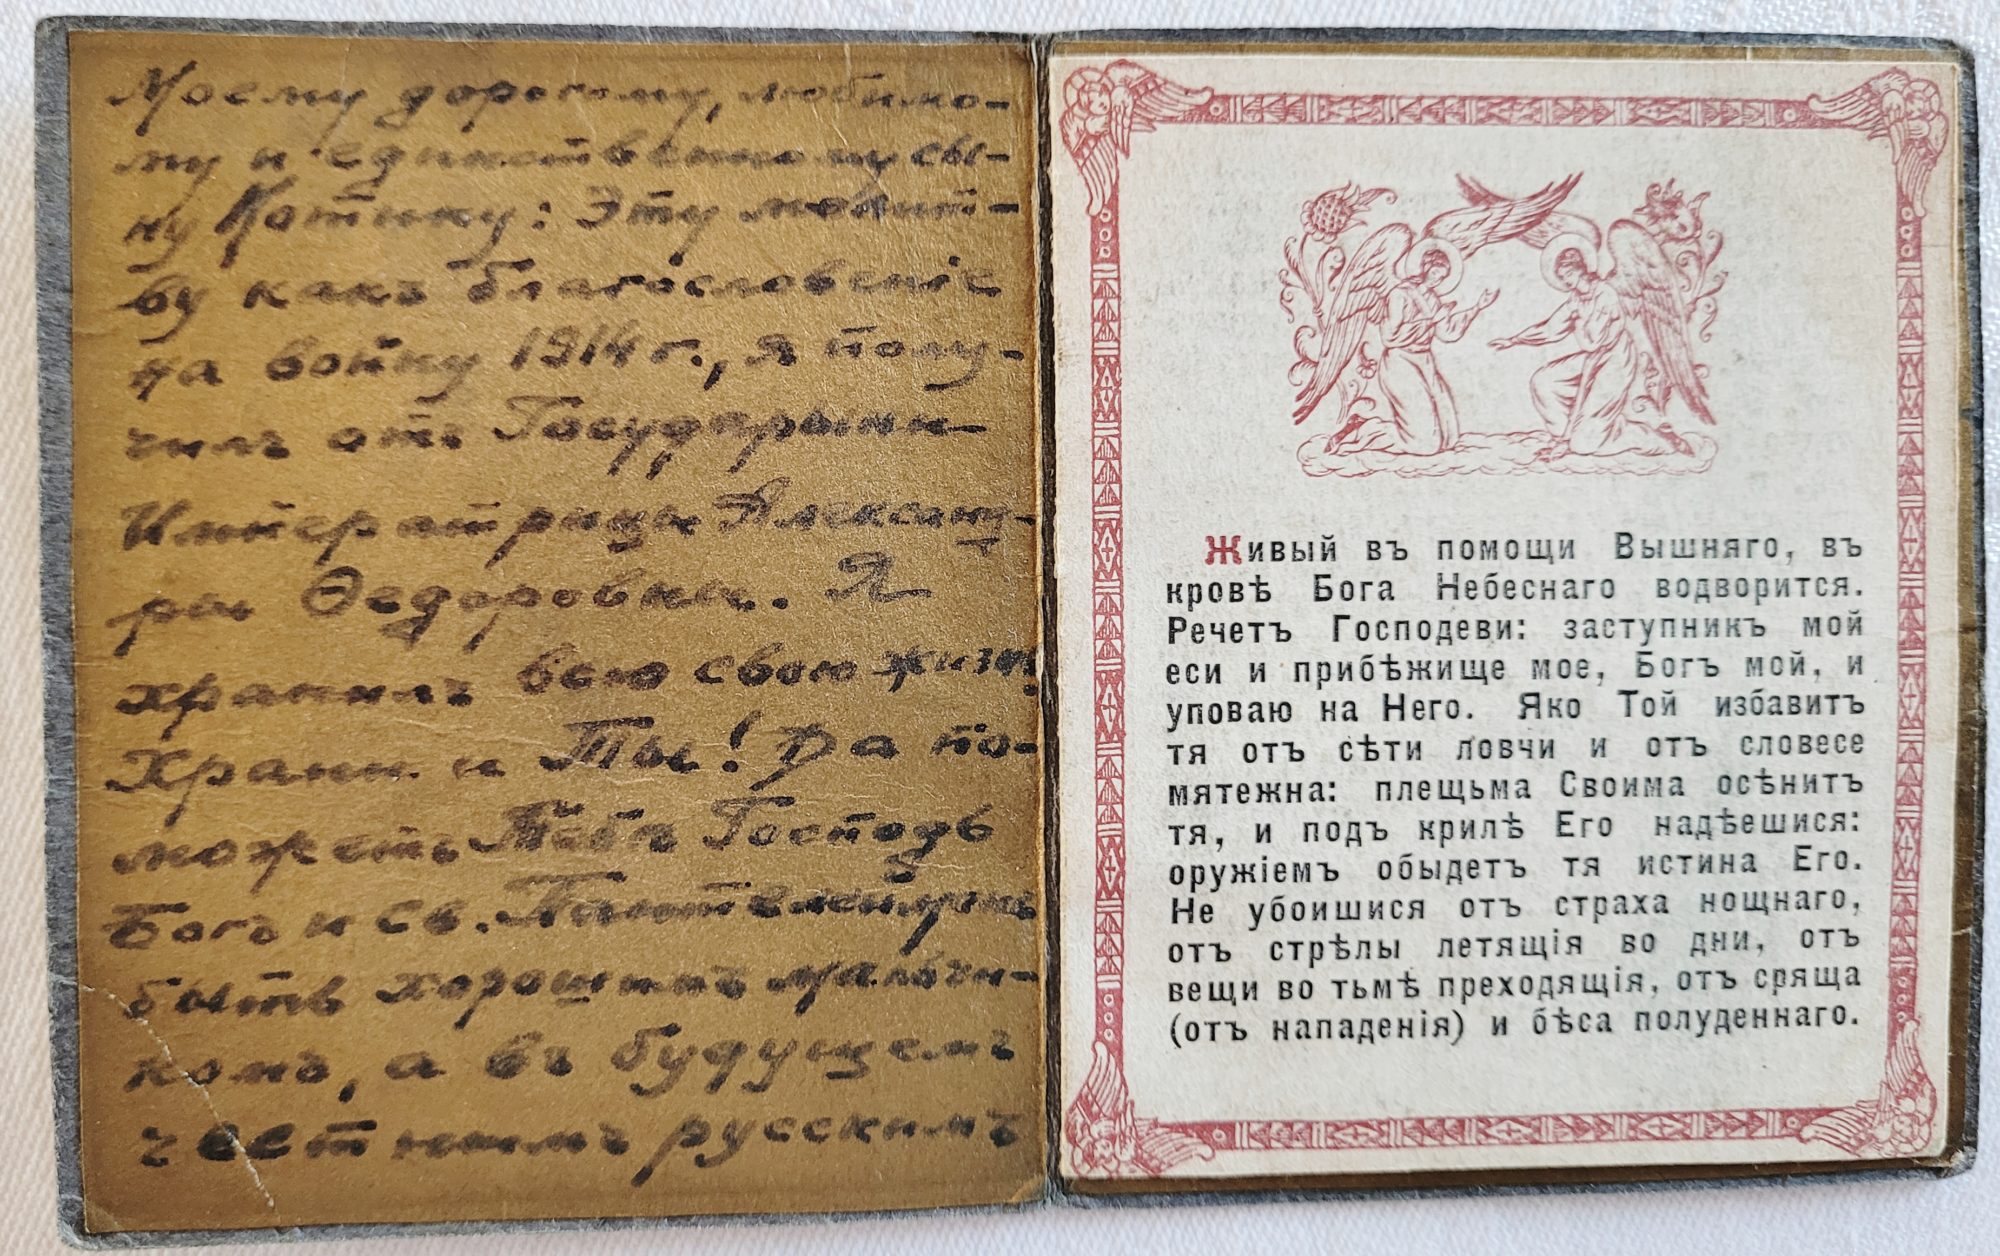 Моему дорогому, любимо-
му и единственному сы-
ну Котику: Эту молит-
ву какъ благословенiе
на войну 1914 г., я полу-
чилъ отъ Государыни-
Императрицы Александ-
ры Ѳедоровны. Я
хранилъ всю свою жизнь.
Храни и Ты! Да по-
можетъ Тебѣ Господь
Богъ и св. Пантелеимонъ
быть хорошимъ мальчи-
комъ, а въ будущемъ
честнымъ русскимъ
Живый въ помощи Вышняго, въ
кровѣ Бога Небеснаго водворится.
Речетъ Господеви: заступникъ мой
еси и прибѣжище мое, Богъ мой, и
уповаю на Него. Яко Той избавитъ
тя отъ сѣти ловчи и отъ словесе
мятежна: плещьма Своима осѣнитъ
тя, и подъ крилѣ Его надѣешися:
оружіемъ обыдетъ тя истина Его.
Не убоишися отъ страха нощнаго,
отъ стрѣлы летящія во дни, отъ
вещи во тьмѣ преходящія, отъ сряща
(отъ нападенія) и бѣса полуденнаго.